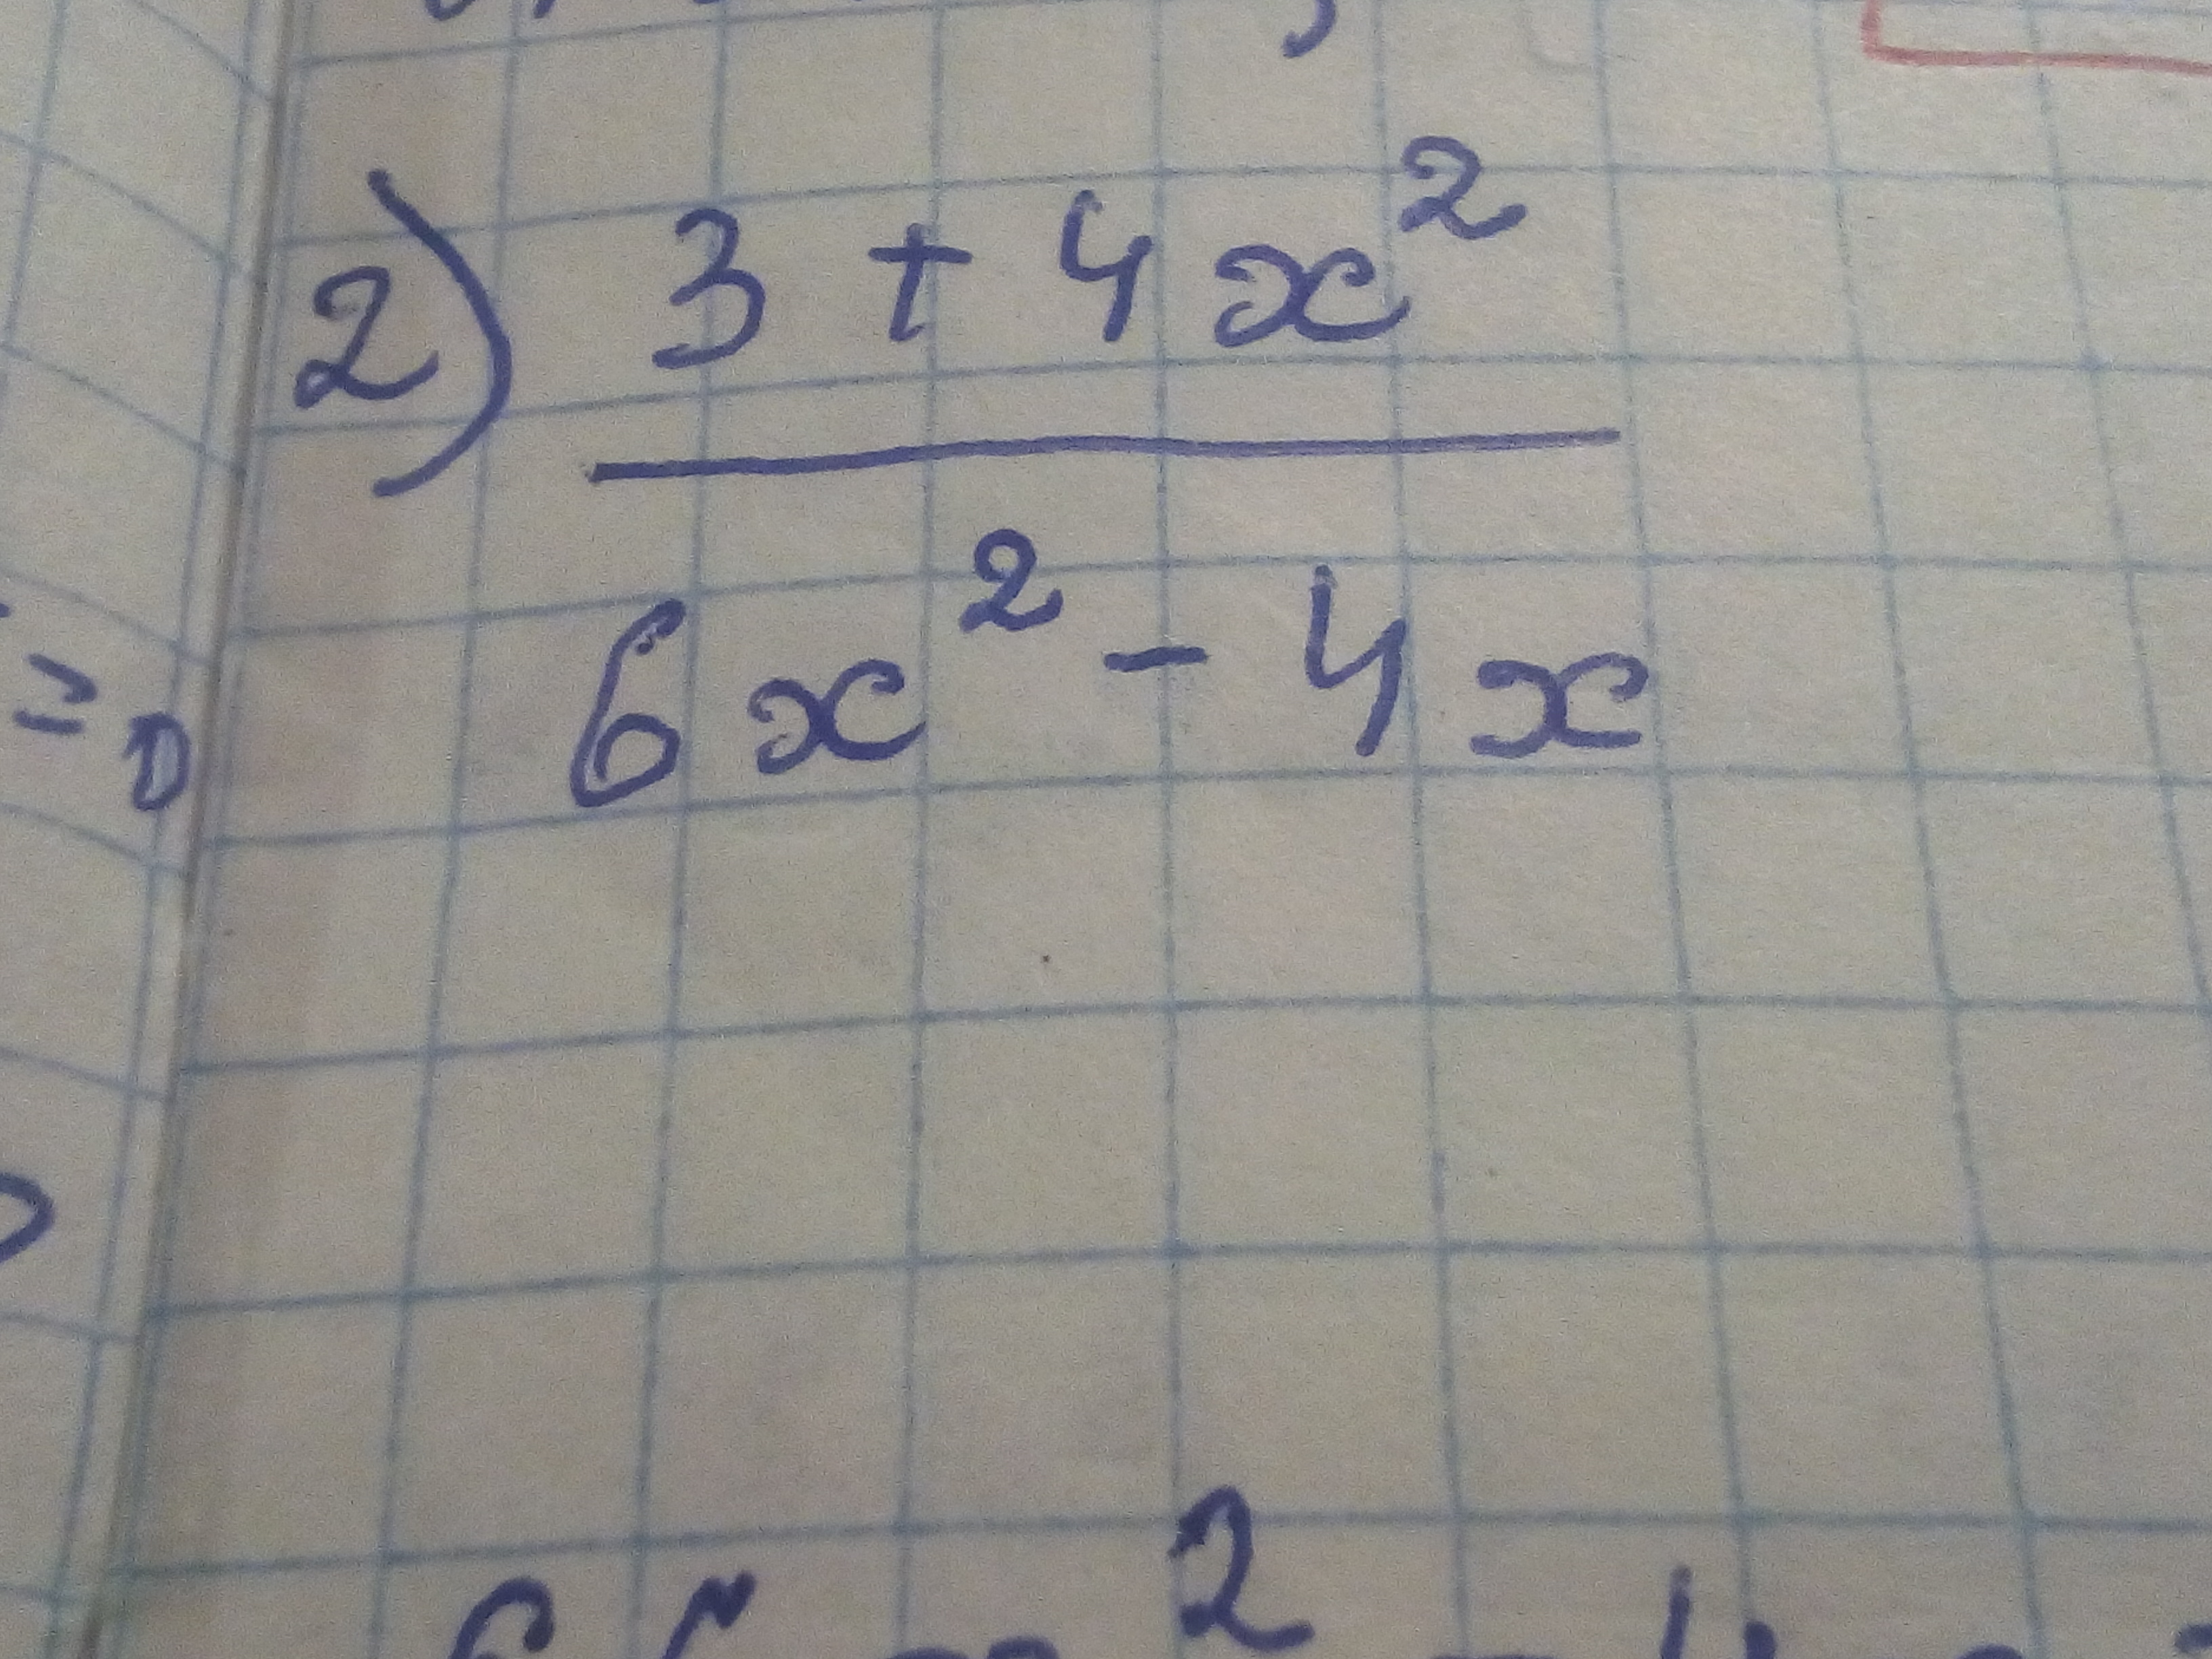 2) 3 + 4x²
6x² - 4x